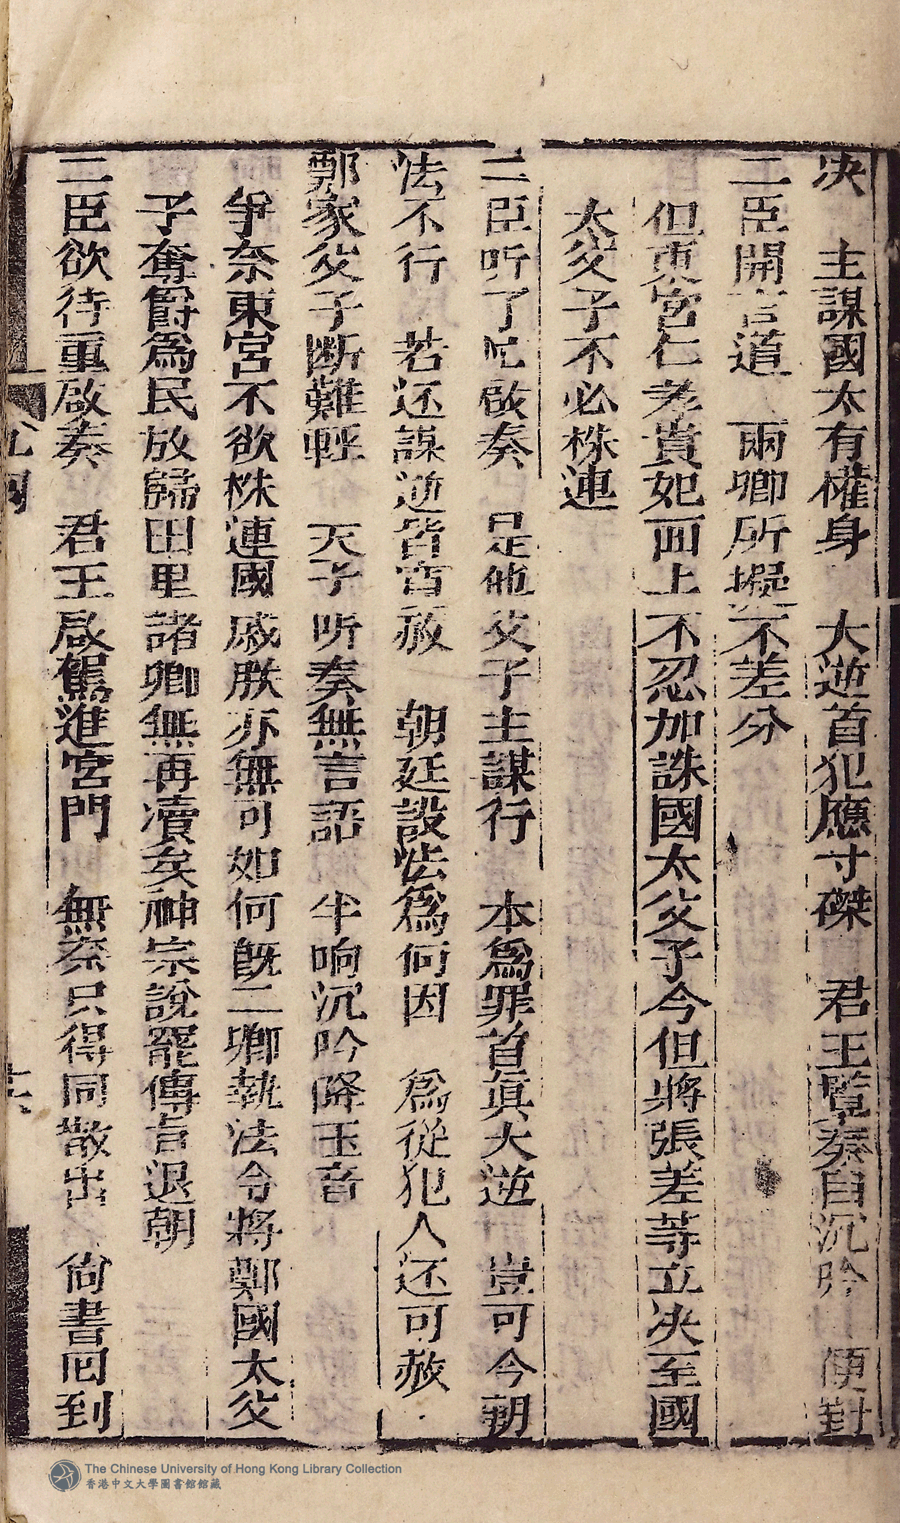 决　主謀國太有權身　大逆首犯應寸磔　君王覧奏自沉吟　便對
二臣開言道　兩卿所擬不差分
但東宮仁孝貴妃面上不忍加誅國太父子今但將張差等立决至國
太父子不必株連
二臣听了忙啟奏　是他父子主謀行　本爲罪首眞大逆　豈可今朝
法不行　若还謀逆皆宥赦　朝廷設法爲何因　爲從犯人还可赦
鄭家父子断難輕　天子听奏無言語　半响沉吟降玉音
爭奈東宮不欲株連國戚朕亦無可如何旣二卿執法今將鄭國太父
子奪爵爲民放歸田里諸卿無再凟矣神宗說罷傳旨退朝
二臣欲待重啟奏　君王啟駕進宮門　無奈只得同散出　尙書囘到
The Chinese University of Hong Kong Library Collection
香港中文大學圖書館館藏